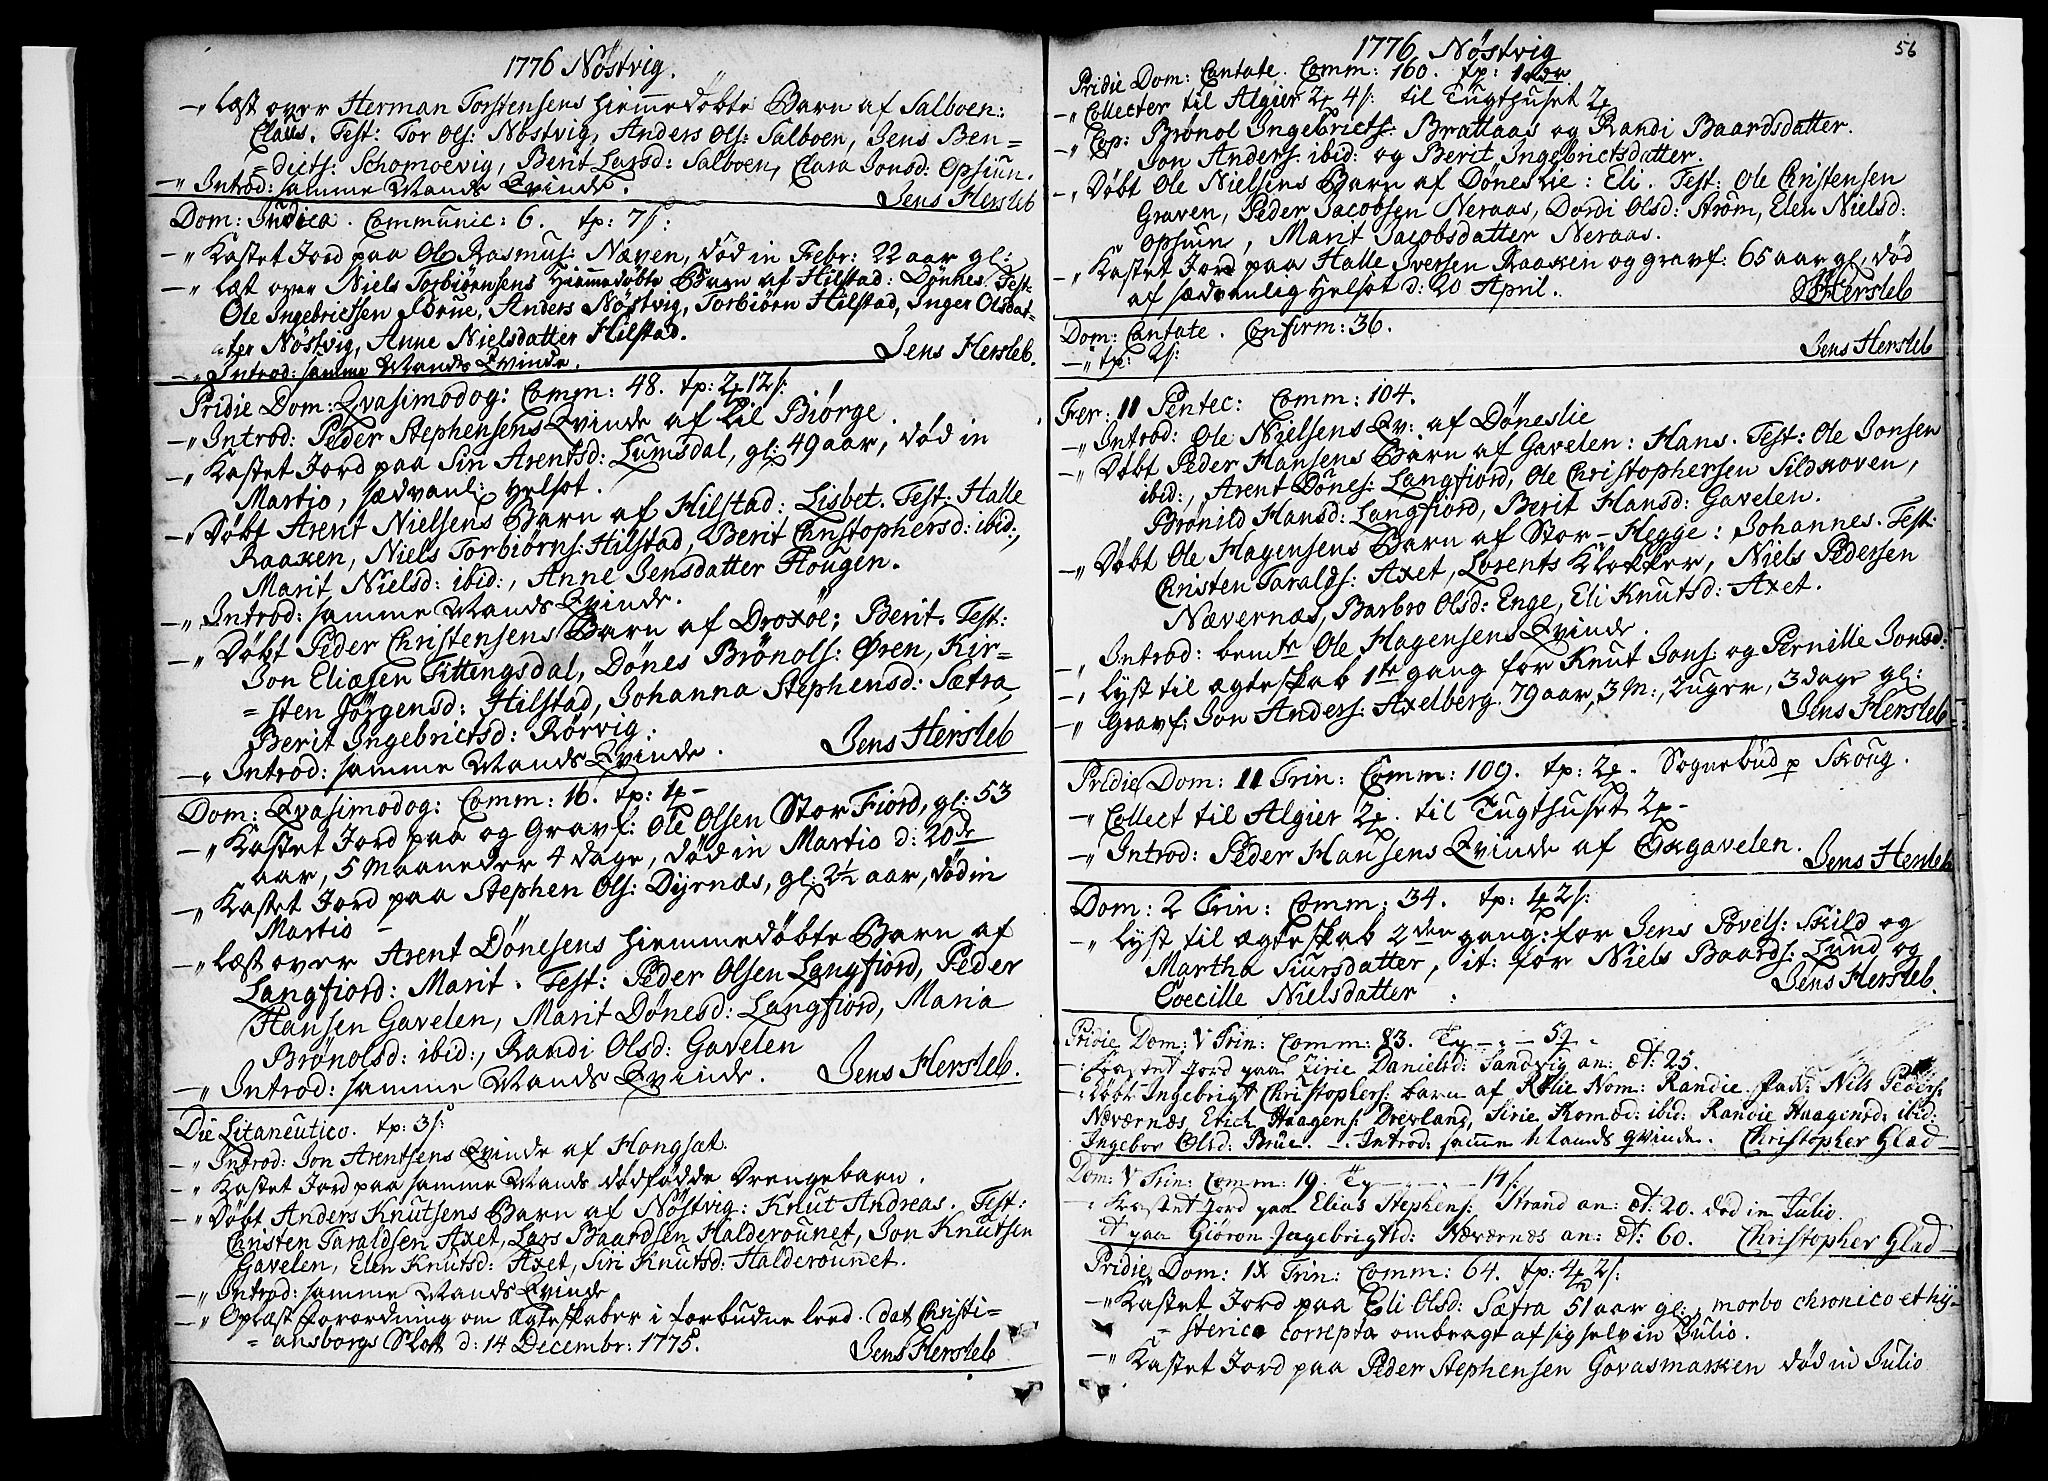 1776 Nöstvig.
—„ Læst over Herman Torstensens hiemmedöbte Barn af Salboen:
Claus. Test: Tor Ols: Nöstvig, Anders Ols: Salboen, Jens Ben=
=dicts: Schomoevig, Berit Larsd: Salboen, Clara Jonsd: Opsiun.
—„ Introd: samme Mands Qvinde. Jens Hersleb
Dom: Judica. Communic: 6. tp: 7 s:
—„ Kastet Jord paa Ole Rasmus: Næven, död in Febr: 22 aar gl:
—„ Læst over Niels Torbiörnsens Hiemmedöbte Barn af Hilstad: Dönnes. Test:
Ole Ingebrictsen Brue, Anders Nöstvig, Torbiörn Hilstad, Inger Olsdat=
ter Nöstvig, Anne Nielsdatter Hilstad.
—„ Introd: samme Mands Qvinde. Jens Hersleb.
Pridie Dom: Qvasimodog: Comm: 48. tp: 2 12 s:
—„ Introd: Peder Stephensens Qvinde af Lil Biörge.
—„ Kastet Jord paa Siri Arentsd: Lumsdal, gl: 49 aar, död in
Martio, sædvanl: Helsot.
—„ Döbt Arent Nielsens Barn af Hilstad: Lisbet. Test: Halle
Raaken, Niels Torbiörns: Hilstad, Berit Christophersd: ibid:,
Marit Nielsd: ibid:, Anne Jensdatter Hougen.
—„ Introd: samme Mands Qvinde.
—„ Döbt Peder Christensens Barn af Droxöl; Berit. Test:
Jon Eliæsen Tittengsdal, Dönes Brönols: Øren, Kir=
=sten Jörgensd: Hilstad, Johanna Stephensd: Sætra,
Berit Ingebrictsd: Rörvig:
—„ Introd: samme Mands Qvinde. Jens Hersleb
Dom: Qvasimodog: Comm: 16. tp: 1
—„ Kastet Jord paa og Gravf: Ole Olsen Stor Fiord, gl: 53
aar, 5 Maaneder 4 dage, död in Martio d: 20de
—„ Kastet Jord paa Stephen Ols: Dyrnæs, gl: 2½ aar, död in
Martio
—„ Læst over Arent Dönesens hiemmedöbte Barn af
Langfiord: Marit. Test: Peder Olsen Langfiord, Peder
Hansen Gavelen, Marit Dönesd: Langfiord, Maria
Brönolsd: ibid:, Randi Olsd: Gavelen
—„ Introd: samme Mands Qvinde. Jens Hersleb.
Die Litaneutico. tp: 3 s:
—„ Introd: Jon Arentsens Qvinde af Hongsæt.
—„ Kastet Jord paa samme Mands dödfödde Drengebarn.
—„ Döbt Anders Knutsens Barn af Nöstvig: Knut Andreas. Test:
Christen Taraldsen Axet, Lars Baardsen Halderounet, Jon Knutsen
Gavelen, Elen Knutsd: Axet, Siri Knutsd: Halderounet.
—„ Introd: samme Mands Qvinde
—„ Oplæst Forordning om Ægteskaber i forbudne Leed. dat Christi=
=ansborgs Slot d: 14 Decembr: 1775. Jens Hersleb
1776 Nöstvig 56
Pridie Dom: Cantate. Comm: 160. tp:
—„ Collecter til Algier 2 4 s: til Tugthuset 2
—„ Cop: Brönol Ingebricts: Bratlaas og Randi Baardsdatter.
Jon Anders: ibid: og Berit Ingebrictsdatter.
—„ Döbt Ole Nielsens Barn af Döneslie: Eli. Test: Ole Christensen
Graven, Peder Jacobsen Neraas, Dordi Olsd: Ström, Elen Nielsd:
Opsiun, Marit Jacobsdatter Neraas.
—„ Kastet Jord paa Halle Iversen Raaken og gravf: 65 aar gl, död
af sædvanlig Helsot d: 20 April. Hersleb
Dom: Cantate. Confirm: 36.
—„ tp: 2 s: Jens Hersleb
Fer: II Pentec: Comm: 104.
—„ Introd: Ole Nielsens Qv: af Döneslie
—„ Döbt Peder Hansens Barn af Gavelen: Hans. Test: Ole Jonsen
ibid:, Arent Dönes: Langfiord, Ole Christophersen Sildkoven,
Brönild Hansd: Langfiord, Berit Hansd: Gavelen.
—„ Döbt Ole Hagensens Barn af Stor-Hegge: Johannes. Test:
Christen Taralds: Axet, Lorents Klokker, Niels Pedersen
Nævernæs, Barbro Olsd: Enge, Eli Knutsd: Axet.
—„ Introd: bemte Ole Hagensens Qvinde.
—„ Lyst til ægteskab 1te gang for Knut Jons: og Pernille Jonsd:
—„ Gravf: Jon Anders: Axelberg. 79 aar, 3 M:, 2 uger, 3 dage gl:
Jens Hersleb
Pridie Dom: II Trin: Comm: 109. tp: 2. Sognebud p Skoug.
—„ Collect til Algier 2. til Tugthuset 2
—„ Introd: Peder Hansens Qvinde af Exgavelen. Jens Hersleb
Dom: 2 Trin: Comm: 34. tp: 4 2 s:
—„ Lyst til ægteskab 2den gang: for Jens Povels: Skild og
Martha Siursdatter, it: for Niels Baards: Lund og
Coecille Nielsdatter Jens Hersleb.
Pridie Dom: V Trin: Comm: 83.
Kastet Jord paa Sirie Danielsd: Sandvig an: æt: 25.
Döbt Ingebrigt Christophers: barn af Rölie Nom: Randie. Fadd: Nils Peders:
Næværnæs, Erich Haagens: Drevland, Sirie ibid: Randie Haagensd: ibid:
Ingebor Olsd: Brue. Introd: samme Mands qvinde. Christopher Glad
Dom: V Trin: Comm: 19.
Kastet Jord paa Elias Stephens: Strand an: æt: 20. död in Julio.
it paa Giöron Ingebrigtsd: Næværnæs an: æt: 60. Christopher Glad
Pridie Dom: IX Trin: Comm: 64. tp: 4 2 s:
—„ Kastet Jord paa Eli Olsd: Sætra 51 aar gl:, morbo chronico et hy=
=sterica correpta ombragt af sig selv in Julio.
—„ Kastet Jord paa Peder Stephensen Govasmarken död in Julio